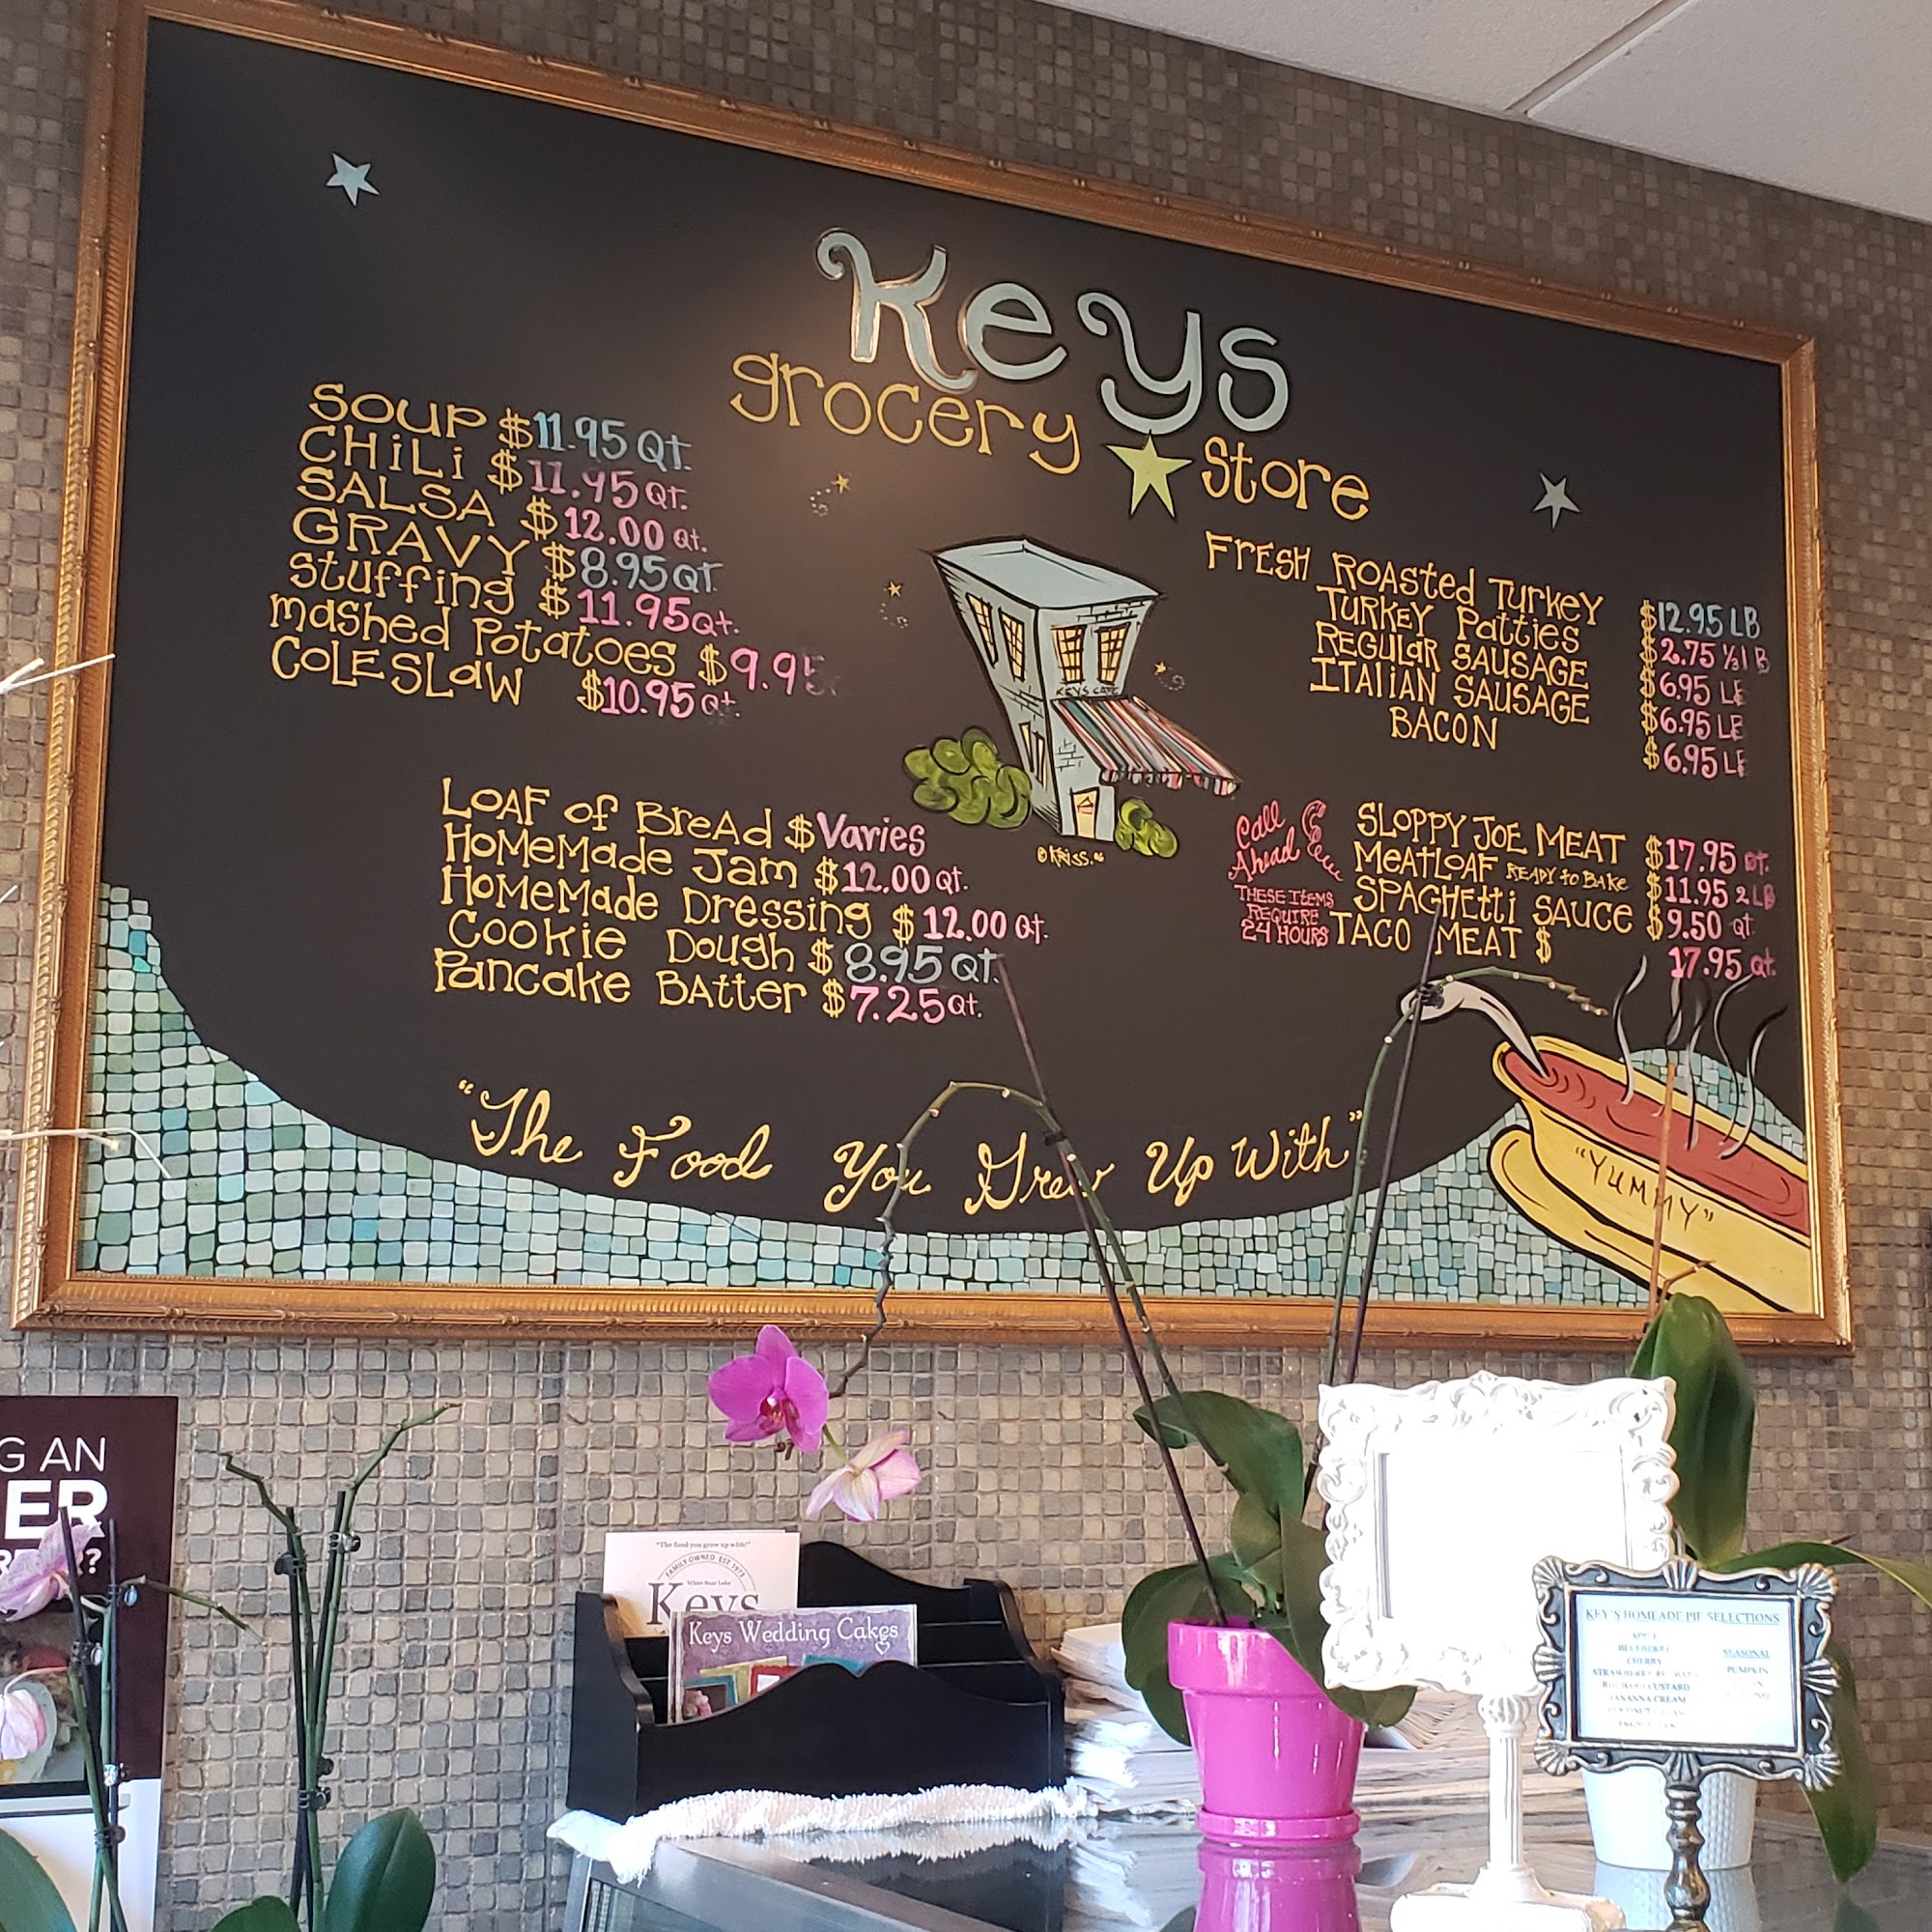 Keys
grocery Store
SOUP $11.95 Qt.
CHiLi $11.95 Qt.
SALSA $12.00 Qt.
GRAVY $8.95 QT
Stuffing $11.95 Qt.
Mashed Potatoes $9.95
COLESLaW $10.95 Qt.
LOAF of BreAd $Varies
HoMeMade Jam $12.00 Qt.
HoMeMade Dressing $12.00 Qt.
Cookie Dough $8.95 Qt.
Pancake BAtter $7.25 Qt.
KEYS CAFE
© KRiSS.
FrESH ROAsted TurKeY $12.95 LB
TURKEY Patties $2.75 1/3 LB
REGULaR SAUSAGE $6.95 LB
ITALiAN SAUSAGE $6.95 LB
BACON $6.95 LB
Call
Ahead
THESE ITEMS
REQUIRE
24 HOURS
SLOPPY JOE MEAT $17.95 Qt.
MEATLOAF READY to BAKE $11.95 2 LB
SPAGHEtti SAUCE $9.50 Qt.
TACO MEAT $17.95 Qt.
"The Food You Grew Up With"
"YUMMY"
G AN
ER
R?
"The food you grew up with!"
FAMILY OWNED EST. 1973
White Bear Lake
Keys
Keys Wedding Cakes
KEY'S HOMEADE PIE SELECTIONS
BLUEBERRY
CHERRY
BANANNA CREAM
SEASONAL
PUMPKIN